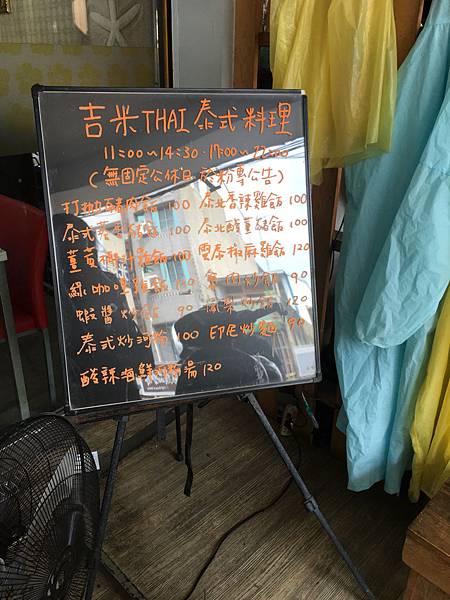 吉米THAI泰式料理
11:00~14:30.17:00~22:00
(無固定公休日 於粉專公告)
打拋豬肉飯 100 泰北香辣雞飯 100
泰式 飯 100 泰北酸薑 飯 100
薑黃檸汁雞飯 100 雲泰椒麻雞飯 120
綠 飯 炒飯 90
蝦醬炒飯 90 鳳梨炒飯 120
泰式炒河粉 100 印尼炒麵 90
酸辣海鮮河粉湯 120